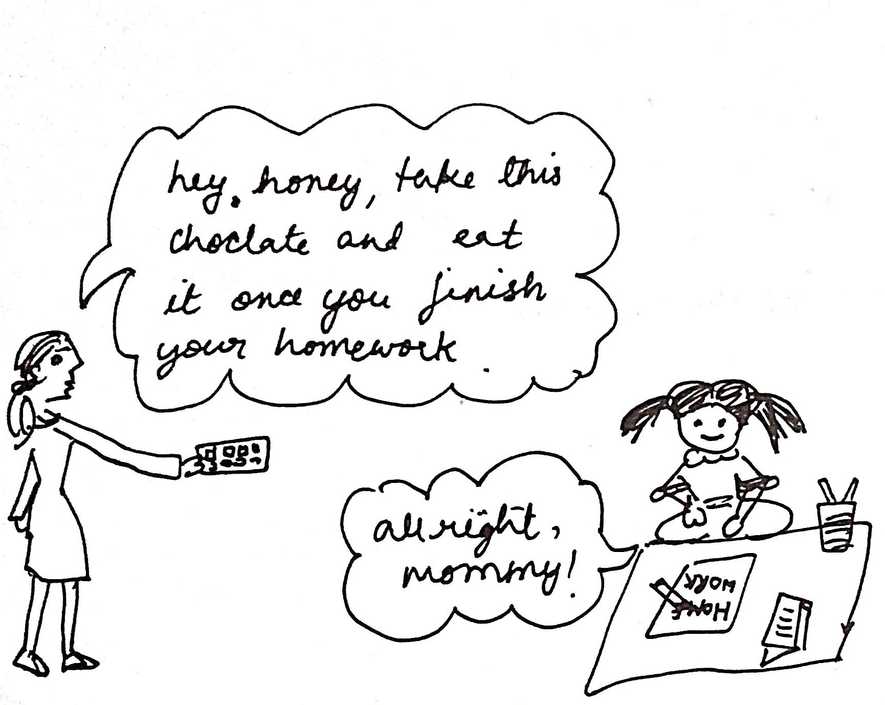 hey. honey, take this
choclate and eat
it once you finish
your homework.
allright,
mommy!
HOME
WORK